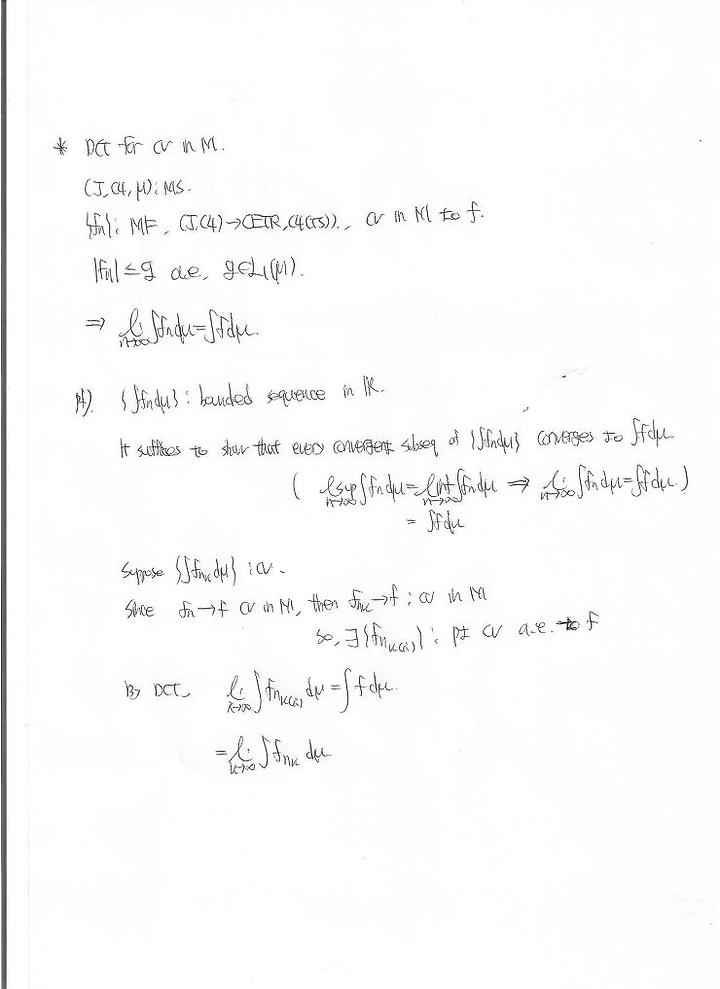 * DCT for cv in M.
(J, A, μ): MS.
{fn}: MF, (J, A) → (ETR, A(τs))., cv in M to f.
|fn| ≤ g a.e, g∈L1(μ).
⇒ li n→∞ ∫fndμ = ∫fdμ.
pf). {∫fndμ} : bounded sequence in IR.
It suffices to show that every convergent subseq of {∫fndμ} converges to ∫fdμ.
( lsup n→∞ ∫fndμ = linf n→∞ ∫fndμ ⇒ li n→∞ ∫fndμ = ∫fdμ. )
= ∫fdμ
Suppose {∫fnk dμ} : cv.
Since fn → f cv in M, then fnk → f : cv in M
So, ∃{fnk(i)} : pt cv a.e. to f
By DCT, li ∫fnk(i) dμ = ∫f dμ.
= li k→∞ ∫fnk dμ